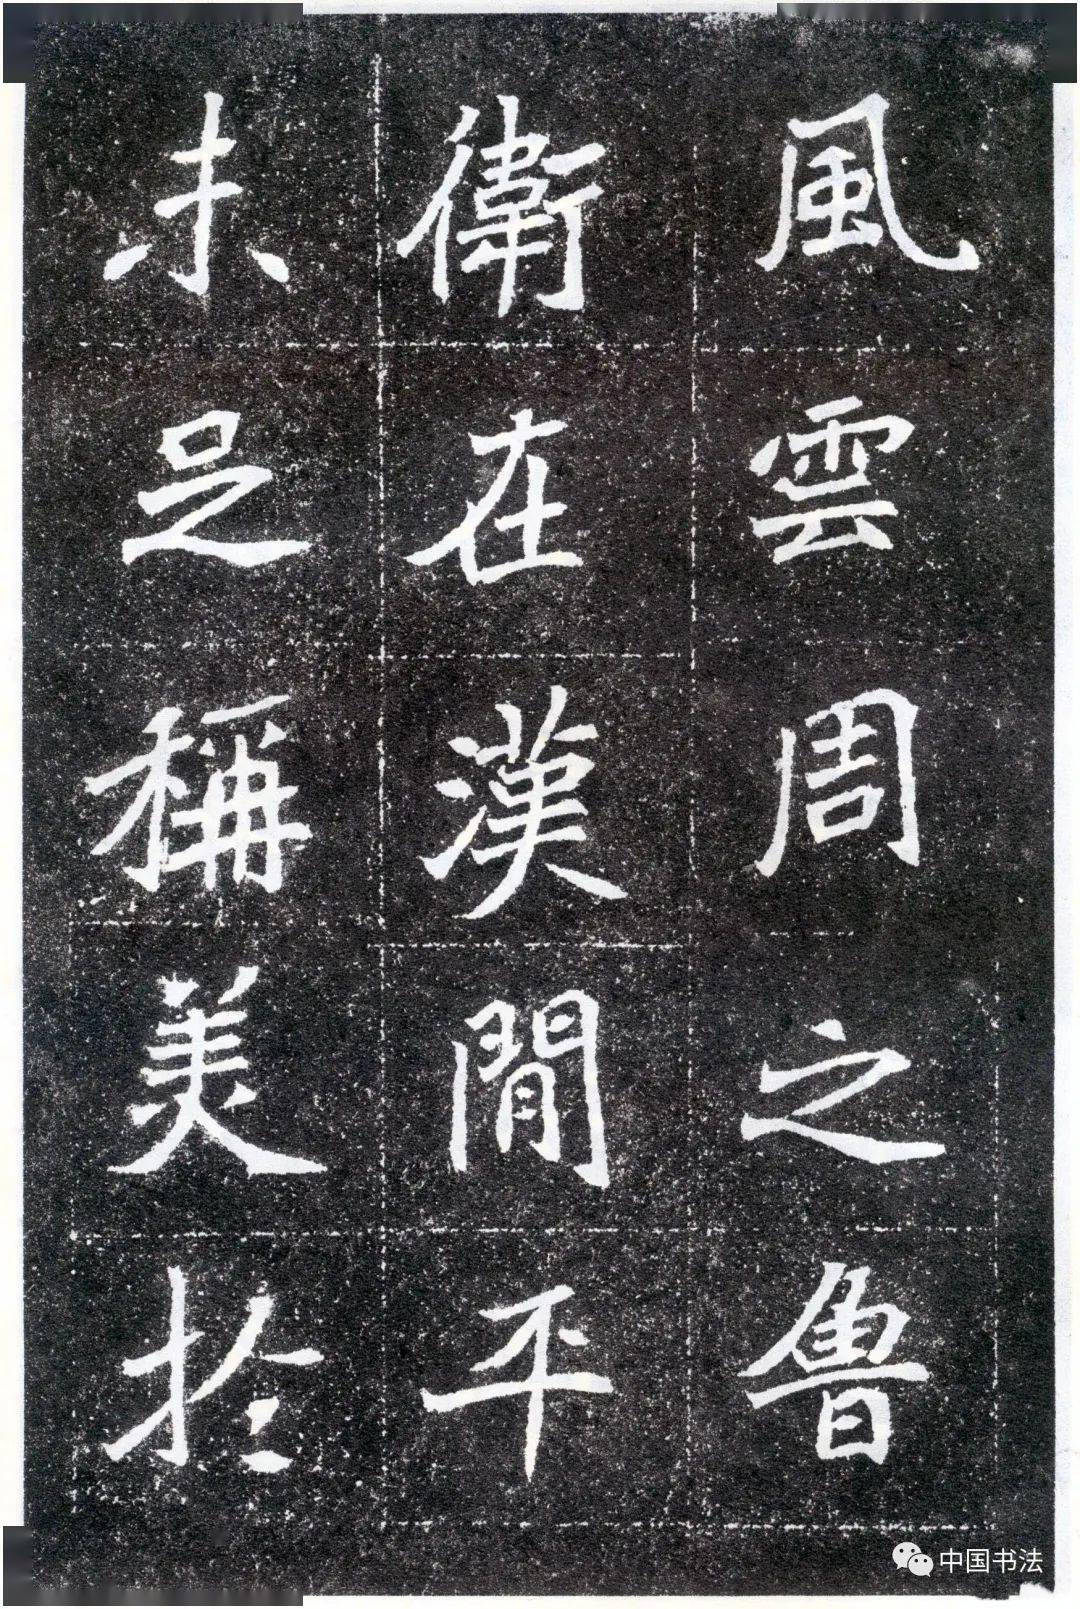 風雲周之魯
衛在漢間平
未足稱美於
中国书法